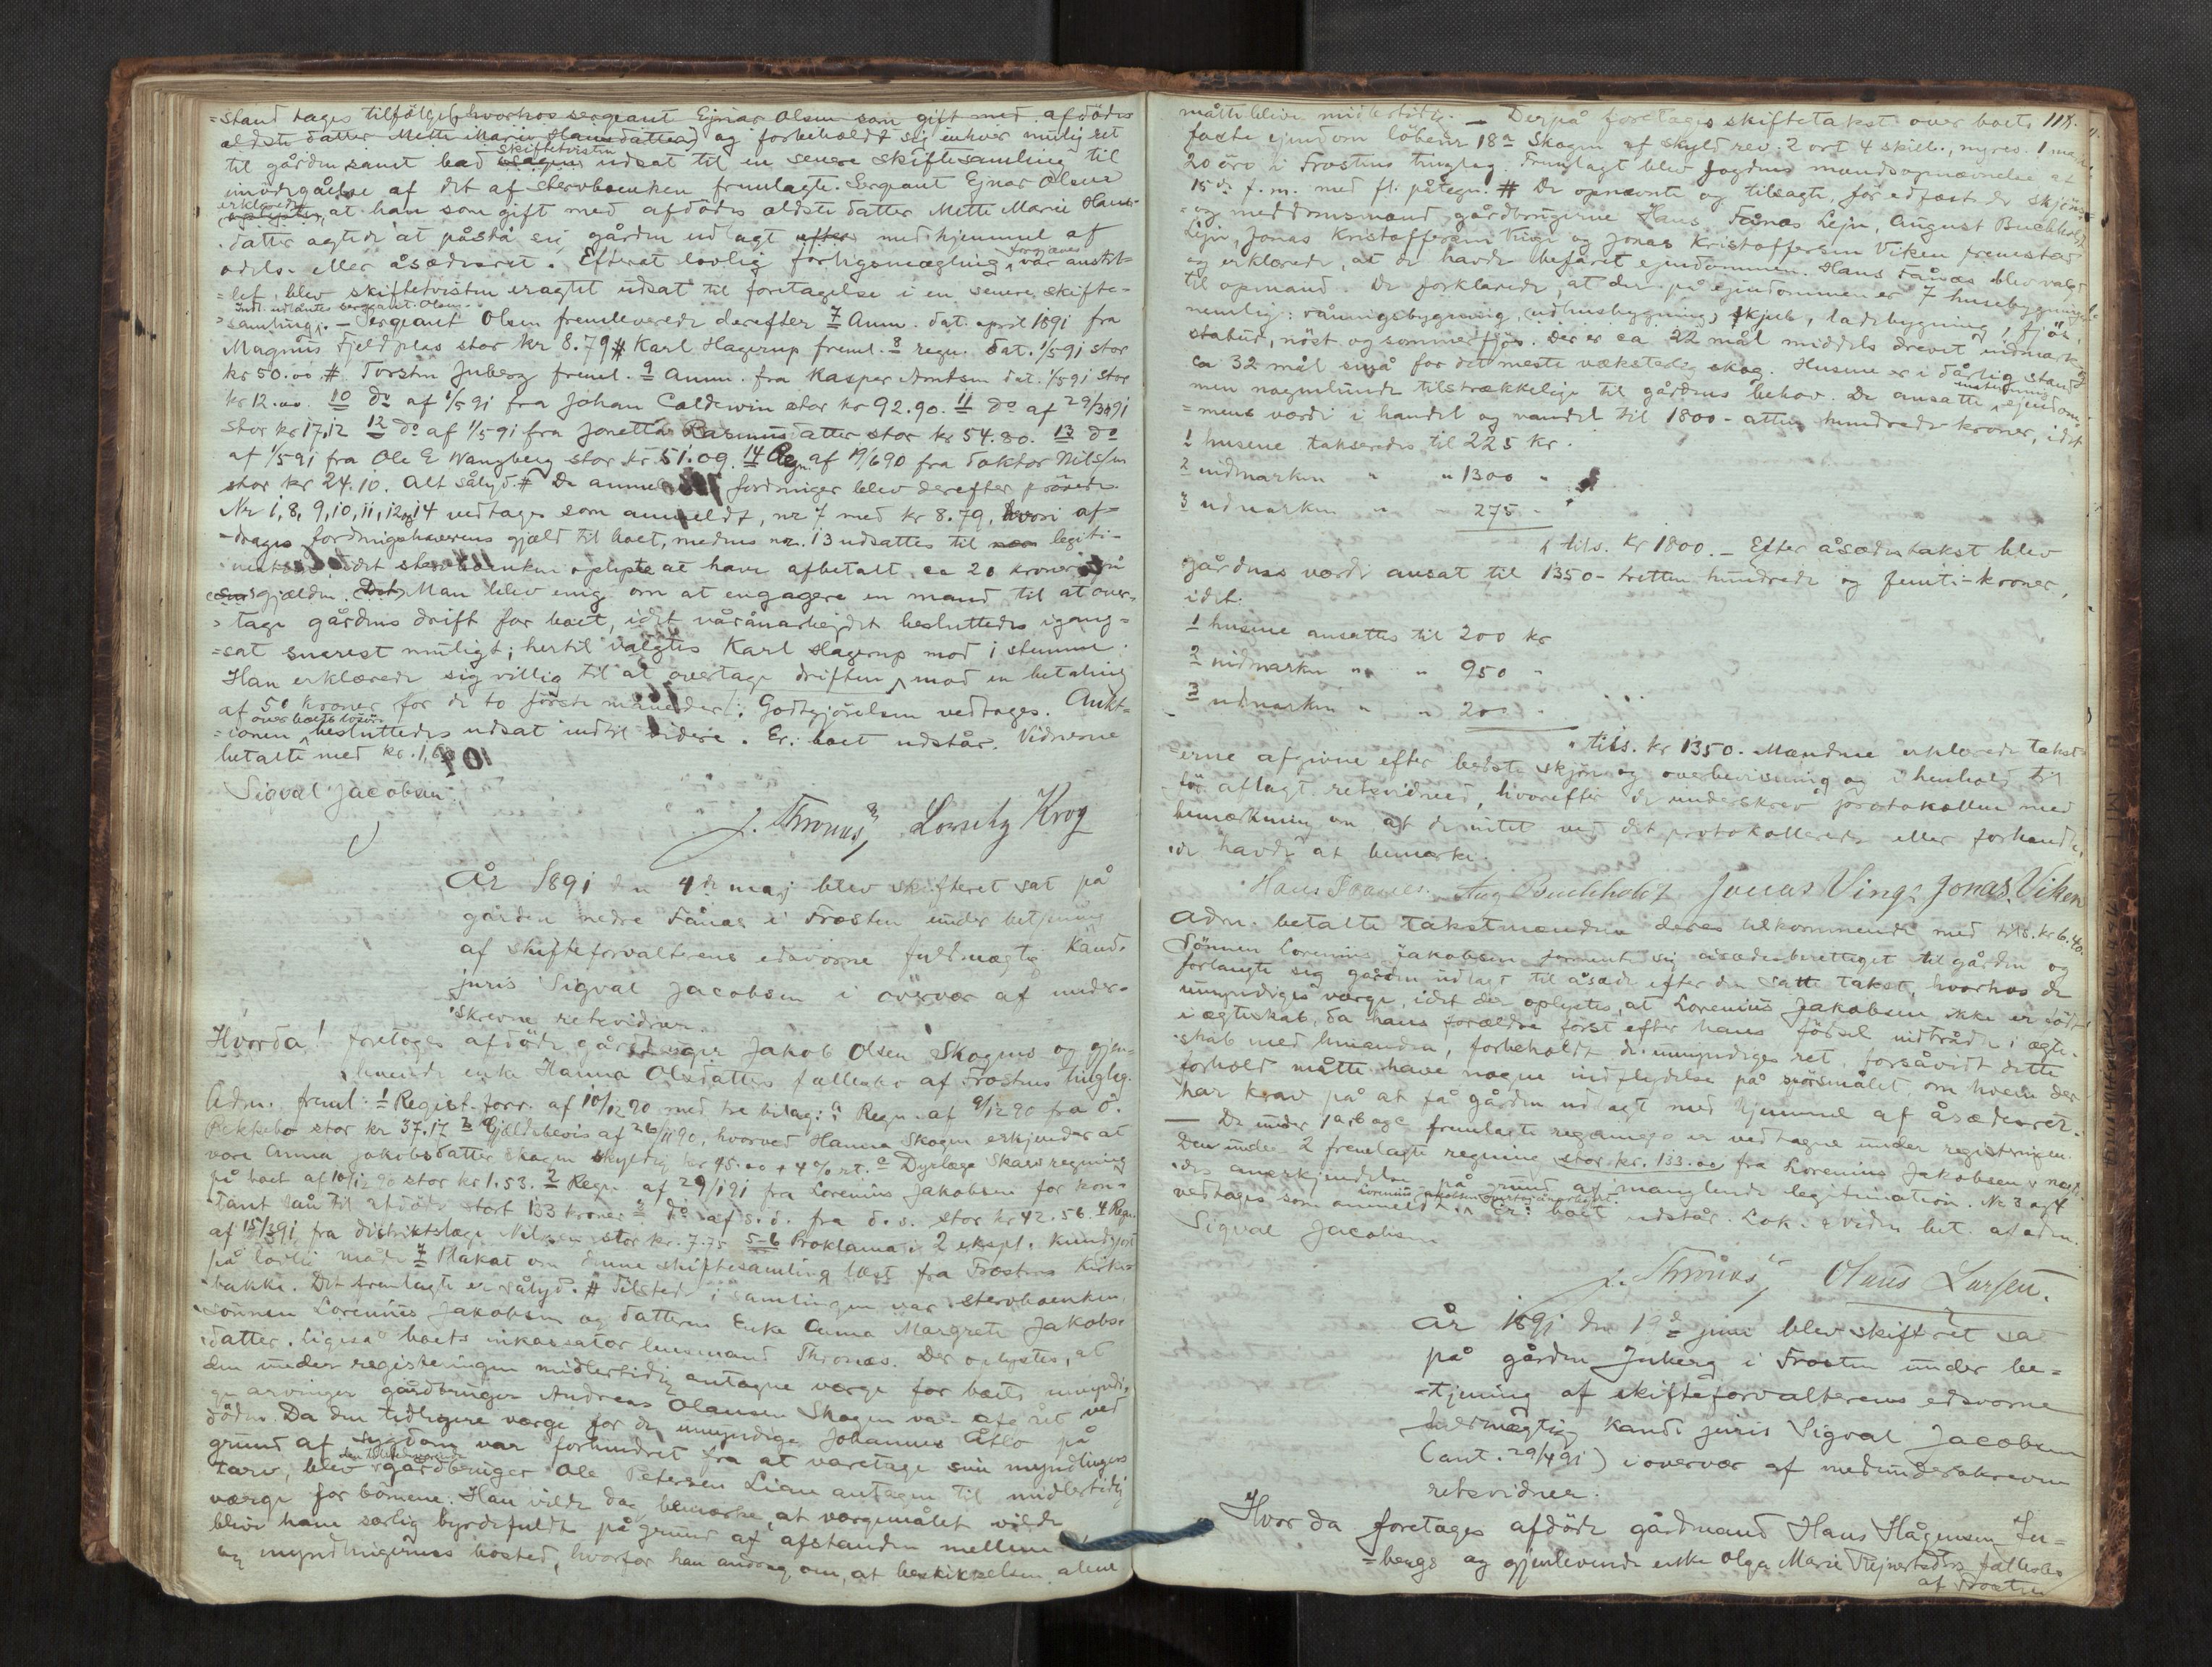 =stand tages tilfölge (hvorhos sergeant Ejnar Olsen som gift med afdödes
ældste datter Mette Marie Hansdatter) og forbeholdt sig enhver mulig ret
til gården samt bad skiftetvisten udsat til en senere skiftesamling til
imödegåelse af det af stervboenken fremlagte. Sergeant Ejnar Olsen
erklærede, at han som gift med afdödes ældste datter Mette Marie Hans-
datter agtede at påstå sig gården udlagt efter med hjemmel af
odels- eller åsædesret. Efterat lovlig forligsmægling forgjæves var anstil-
=let, blev skiftetvisten eragtet udsat til foretagelse i en senere skifte-
indt. udlantes sergeant Olsen
=samling. — Sergeant Olsen fremleverede derefter 7 Anm. dat. april 1891 fra
Magnus Fjeldplas stor kr 8.79 # Karl Hagerup freml. 8 regn. dat. 1/5 91 stor
kr 50.00. # Torsten Juberg freml. 9 Anm. fra Kasper Arntsen dat. 1/5 91 stor
kr 12.00. 10 do af 1/5 91 fra Johan Caldewin stor kr 92.90. 11 do af 29/3 91
stor kr 17,12 12 do af 1/5 91 fra Jonetta Rasmusdatter stor kr 54.80. 13 do
af 1/5 91 fra Ole E Wangberg stor kr 51.09. 14 Regn. af 19/6 90 fra doktor Nilssen
stor kr 24.10. Alt sålyd. # De anmeldte fordringer blev derefter prövede.
Nr 1, 8, 9, 10, 11, 12 og 14 vedtages som anmeldt, nr 7 med kr 8.79, hvori af=
=drages fordringshaverens gjæld til boet, medens nr. 13 udsattes til legiti-
mation, idet stervboenken oplyste at have afbetalt ca 20 kroner på
gjælden. Man blev enig om at engagere en mand til at over-
=tage gårdens drift for boet, idet våronnarbejdet besluttedes igang=
=sat snarest muligt; hertil valgtes Karl Hagerup mod 1 stemme.
Han erklærede sig villig til at overtage driften mod en betaling
af 50 kroner for de to förste måneder. Godtgjörelsen vedtages. Aukt=
=ionen over boets lösöre besluttedes udsat indtil videre. Er: boet udstår. Vidnerne
betalte med kr. 1,60
Sigval Jacobsen
J. Thronæs, Lornitz Krog
År 1891 den 4de maj blev skifteret sat på
gården nedre Fånæs i Frosten under betjening
af skifteforvalterens edsvorne fuldmægtig kand.
juris Sigval Jacobsen i overvær af under-
skrevne retsvidner.
Hvorda! foretages afdöde gårdbruger Jakob Olsen Skogens og gjen-
levende enke Hanna Olsdatters fællesbo af Frostens tinglag.
Adm. freml: 1 Regist.forr. af 10/12 90 med tre bilag: a Regn. af 9/12 90 fra O.
Rekkebo stor kr 37.17 b Gjældsbevis af 26/11 90, hvorved Hanna Skogen erkjender at
være Anna Jakobsdatter Skogen skyldig kr 45.00 + 4 % rt. c Dyrlæge Skars regning
på boet af 10/12 90 stor kr 1.53. 2 Regn. af 29/1 91 fra Lorenius Jakobsen for kon-
tant lån til afdöde stort 133 kroner 3 do af s.d. fra d.s. stor kr 42.56. 4 Regn.
af 15/3 91 fra distriktslæge Nilssen stor kr. 7.75 5-6 Proklama i 2 ekspl. kundgjort
på lovlig måde 7 Plakat om denne skiftesamling læst fra Frostens Kirke-
bakke. Det fremlagte er sålyd. # Tilstede i samlingen var stervboenken,
sönnen Lorenius Jakobsen og datteren Enke Anna Margrete Jakobs-
datter. Ligeså boets inkassator lensmand Thronæs. Der oplystes, at
den under registeringen midlertidig antagne værge for boets umyndi-
ge arvinger gårdbruger Andreas Olausen Skogen var afgået ved
döden. Da den tidligere værge for de umyndige Johannes Aflo på
grund af sygdom var forhindret fra at varetage sine myndlingers
tarv, blev den tilstedeværende gårdbruger Ole Petersen Lian antagen til midlertidig
værge for börnene. Han vilde dog bemærke, at værgemålet vilde
blive ham særlig byrdefuldt på grund af afstanden mellem
og myndlingernes bosted, hvorfor han androg om, at beskikkelsen alene
måtte blive midlertidig. — Derpå foretages skiftetakst over boets 118.
faste ejendom löbenr 18a Skogen af skyld rev. 2 ort 4 skill., nyres. 1 mark
20 öre i Frostens tinglag. Fremlagt blev fogdens mandsopnævnelse af
15de f.m. med fl. påtegn. # De opnævnte og tilsagte, för edfæstede skjöns-
=og meddomsmænd gårdbrugerne Hans Fånæs Lejn, August Buchholdt
Lejn, Jonas Kristoffersen Ving og Jonas Kristoffersen Viken fremstod
og erklærede, at de havde befaret ejendommen. Hans Fånæs blev valgt
til opmand. De forklarede, at der på ejendommen er 7 husebygninger
nemlig: våningsbygning, udhusbygning, skjul, ladebygning, fjös,
stabur, nöst og sommerfjös. Der er ca 22 mål middels drevet indmark og
ca 32 mål små for det meste vækstelig skog. Husene er i dårlig stand
men nogenlunde tilstrækkelige til gårdens behov. De ansatte enstemmig ejendom-
=mens værdi i handel og vandel til 1800 - atten hundrede kroner, idet
1 husene takseredes til 225 kr.
2 indmarken " " 1300 "
3 udmarken " " 275 "
tils. kr 1800. — Efter åsædestakst blev
gårdens værdi ansat til 1350 - tretten hundrede og femti - kroner,
idet.
1 husene ansattes til 200 kr
2 indmarken " " 950 "
3 udmarken " " 200 "
tils. kr 1350. Mændene erklærede takst-
=erne afgivne efter bedste skjön og overbevisning og i henhold til
för aflagt retsvidneed, hvorefter de underskrev protokollen med
bemærkning om at de intet ved det protokollerede eller forhandle-
de havde at bemærke.
Hans Faanes. Aug Buchholdt Jonas Ving. Jonas. Viken
Adm. betalte takstmændene deres tilkommende med tils. kr 6.40.
Sönnen Lorenius Jakobsen formente sig åsædesberettiget til gården og
forlangte sig gården udlagt til åsæde efter den satte takst, hvorhos de
umyndiges værge, idet der oplystes, at Lorenius Jakobsen ikke er född
i ægteskab, da hans forældre först efter hans födsel indtrådte i ægte-
skab med hinanden, forbeholdt de umyndiges ret, forsåvidt dette
forhold måtte have nogen indflydelse på spörsmålet om hvem der
har krav på at få gården udlagt med hjemmel af åsædesret.
— De under 1 a & b og c fremlagte regninger er vedtagne under registeringen.
Den under 2 fremlagte regning stor kr. 133.00 fra Lorenius Jakobsen nægt-
des anerkjendelse på grund af manglende legitimation. Nr 3 og 4
vedtages som anmeldt. Er: boet udstår. Lok. & vidn. bet. af adm.
Sigval Jacobsen
J. Thronæs, Olaus Larsen.
År 1891 den 19de juni blev skifteret sat
på gården Juberg i Frosten under be-
=tjening af skifteforvalterens edsvorne
fuldmægtig kand. juris Sigval Jacobsen
(aut. 29/4 91) i overvær af medunderskrevne
retsvidner.
Hvor da foretages afdöde gårdmand Hans Hågensen Ju-
=bergs og gjenlevende enke Olga Marie Rejnertsdtrs fællesbo
af Frosten